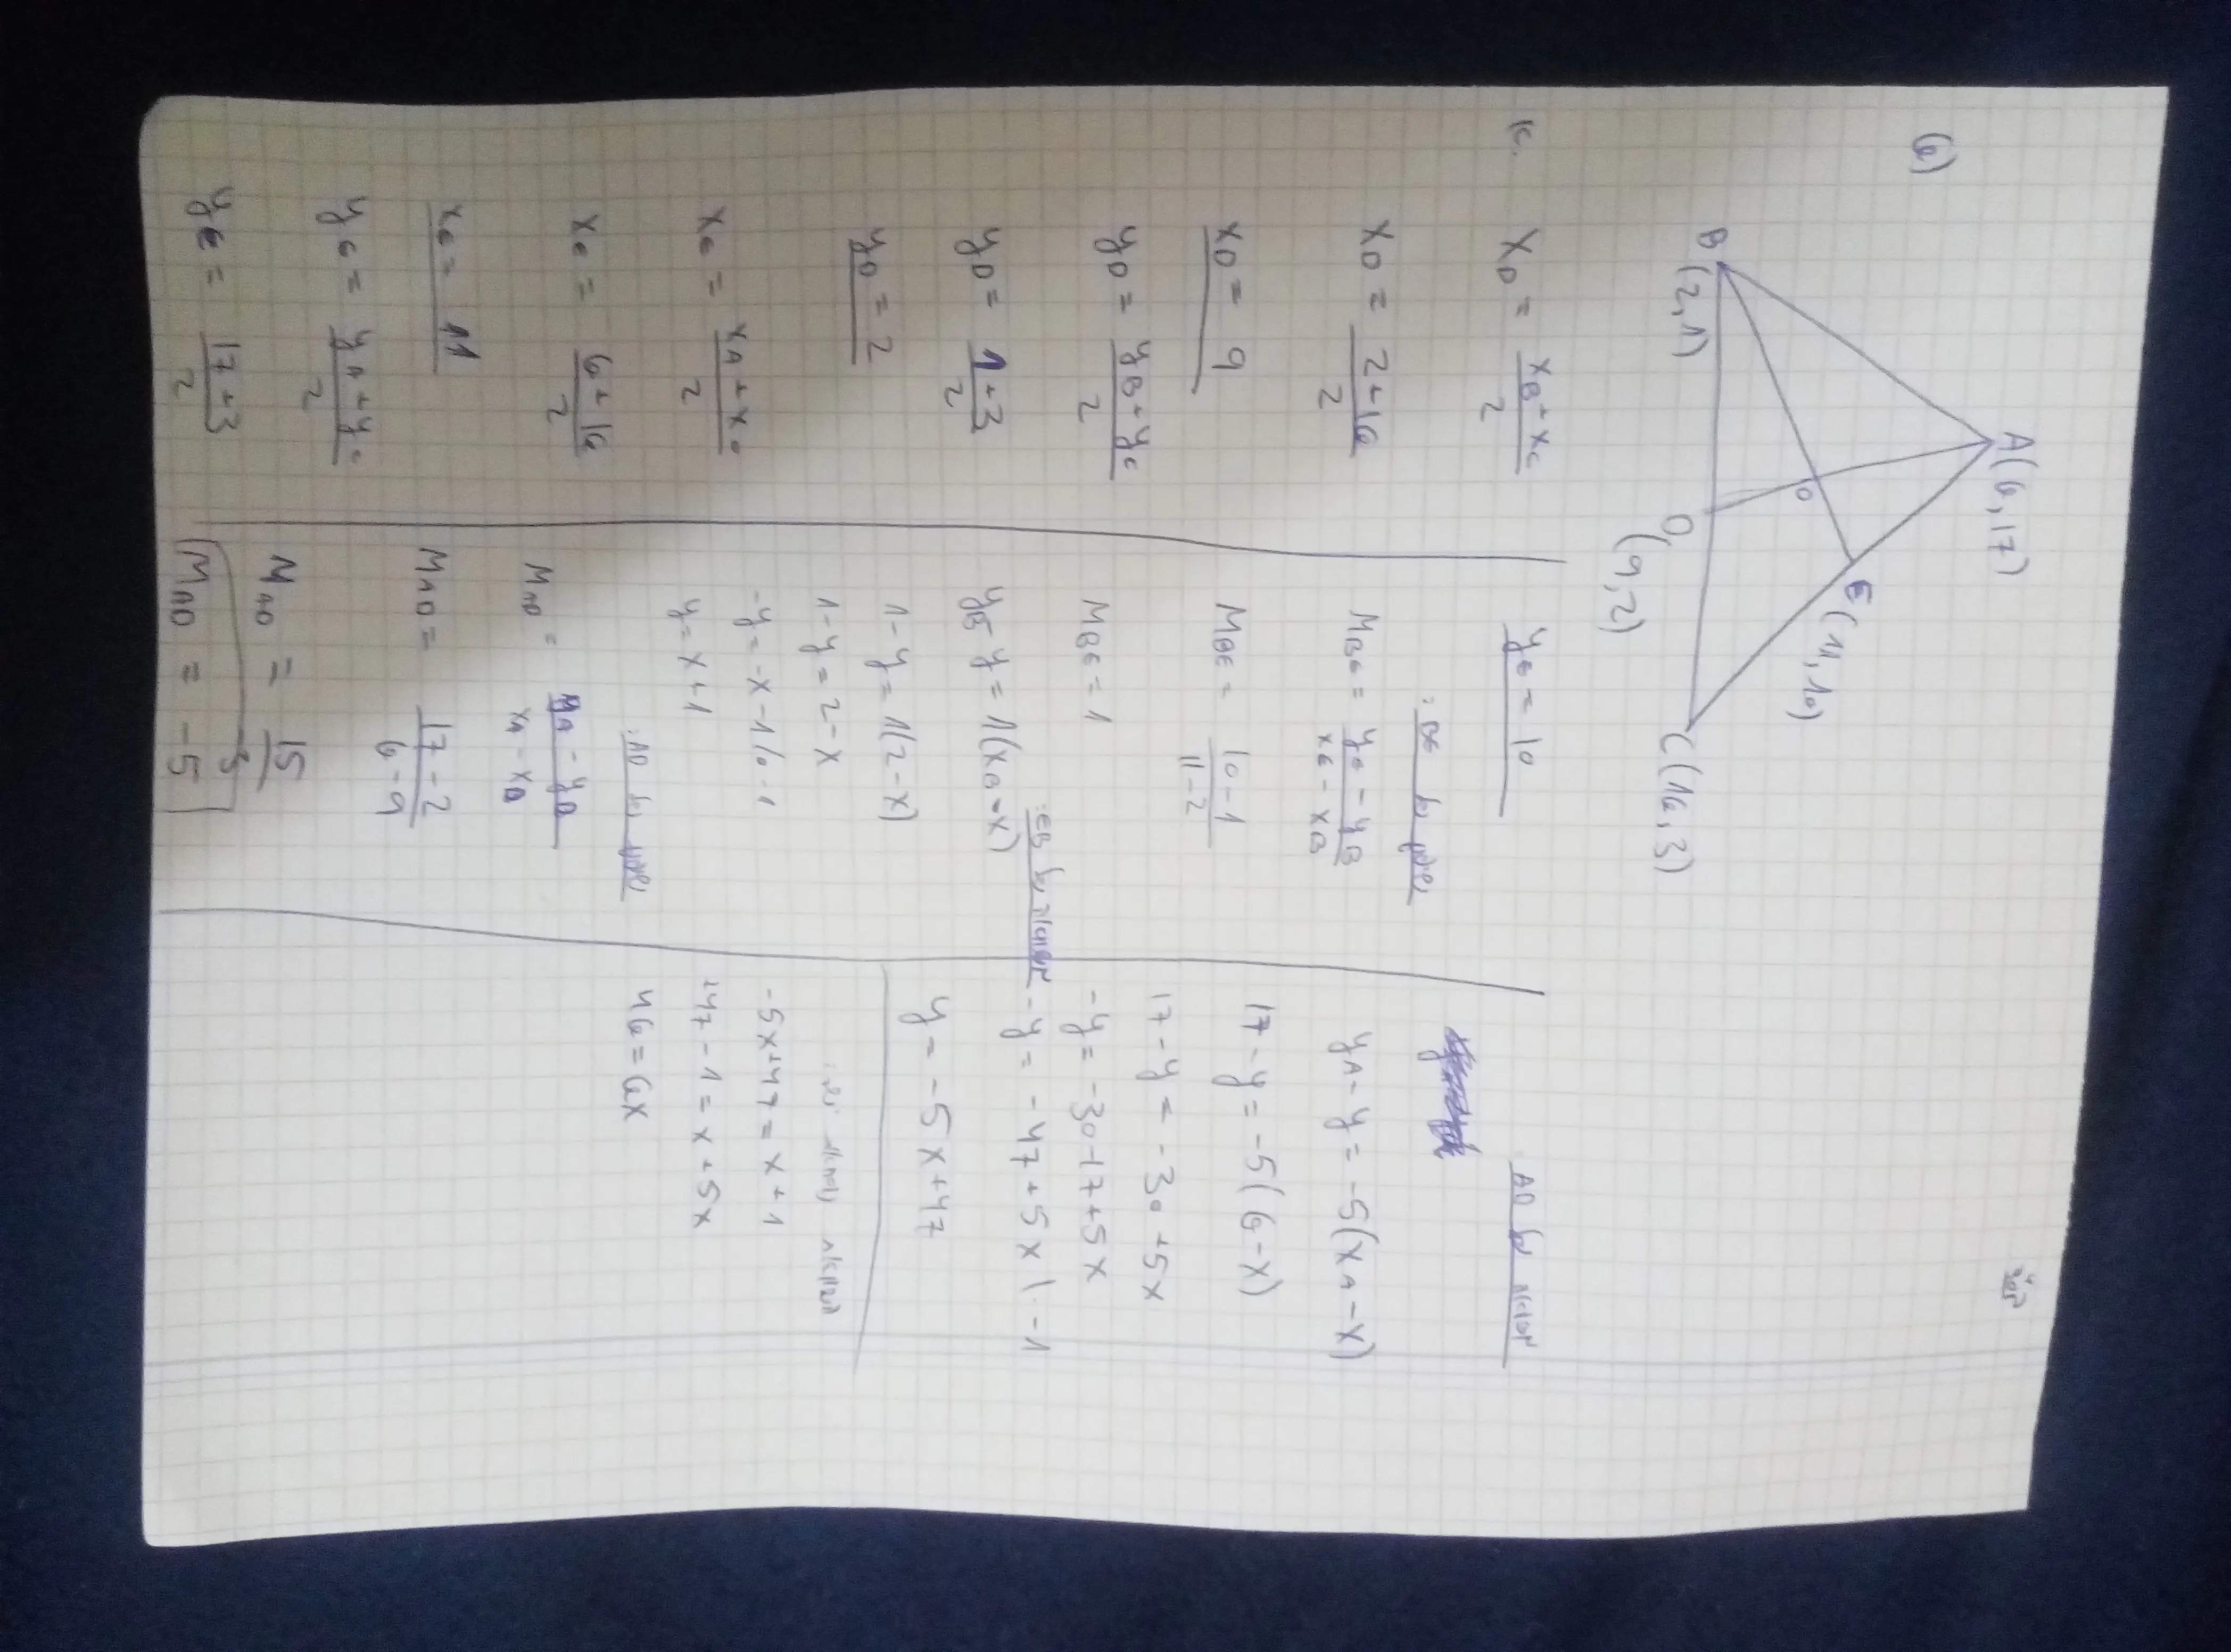 6)
A(6,17)
E(11,10)
B
(2,1)
D
(9,2)
C(16,3)
א.
x_D = (x_B + x_C)/2
x_D = (2+16)/2
x_D = 9
y_D = (y_B + y_C)/2
y_D = (1+3)/2
y_D = 2
x_E = (x_A + x_C)/2
x_E = (6+16)/2
x_E = 11
y_E = (y_A + y_C)/2
y_E = (17+3)/2
y_E = 10
שיפוע של BE:
M_BE = (y_E - y_B)/(x_E - x_B)
M_BE = (10-1)/(11-2)
M_BE = 1
משוואה של EB:
y_B - y = 1(x_B - x)
1-y = 1(2-x)
1-y = 2-x
-y = -x-1 /·-1
y = x+1
שיפוע של AD:
M_AD = (y_A - y_D)/(x_A - x_D)
M_AD = (17-2)/(6-9)
M_AD = 15/-3
M_AD = -5
משוואה של AD
y_A - y = -5(x_A - x)
17-y = -5(6-x)
17-y = -30+5x
-y = -30-17+5x
-y = -47+5x |·-1
y = -5x+47
-5x+47 = x+1
47-1 = x+5x
46 = 6x